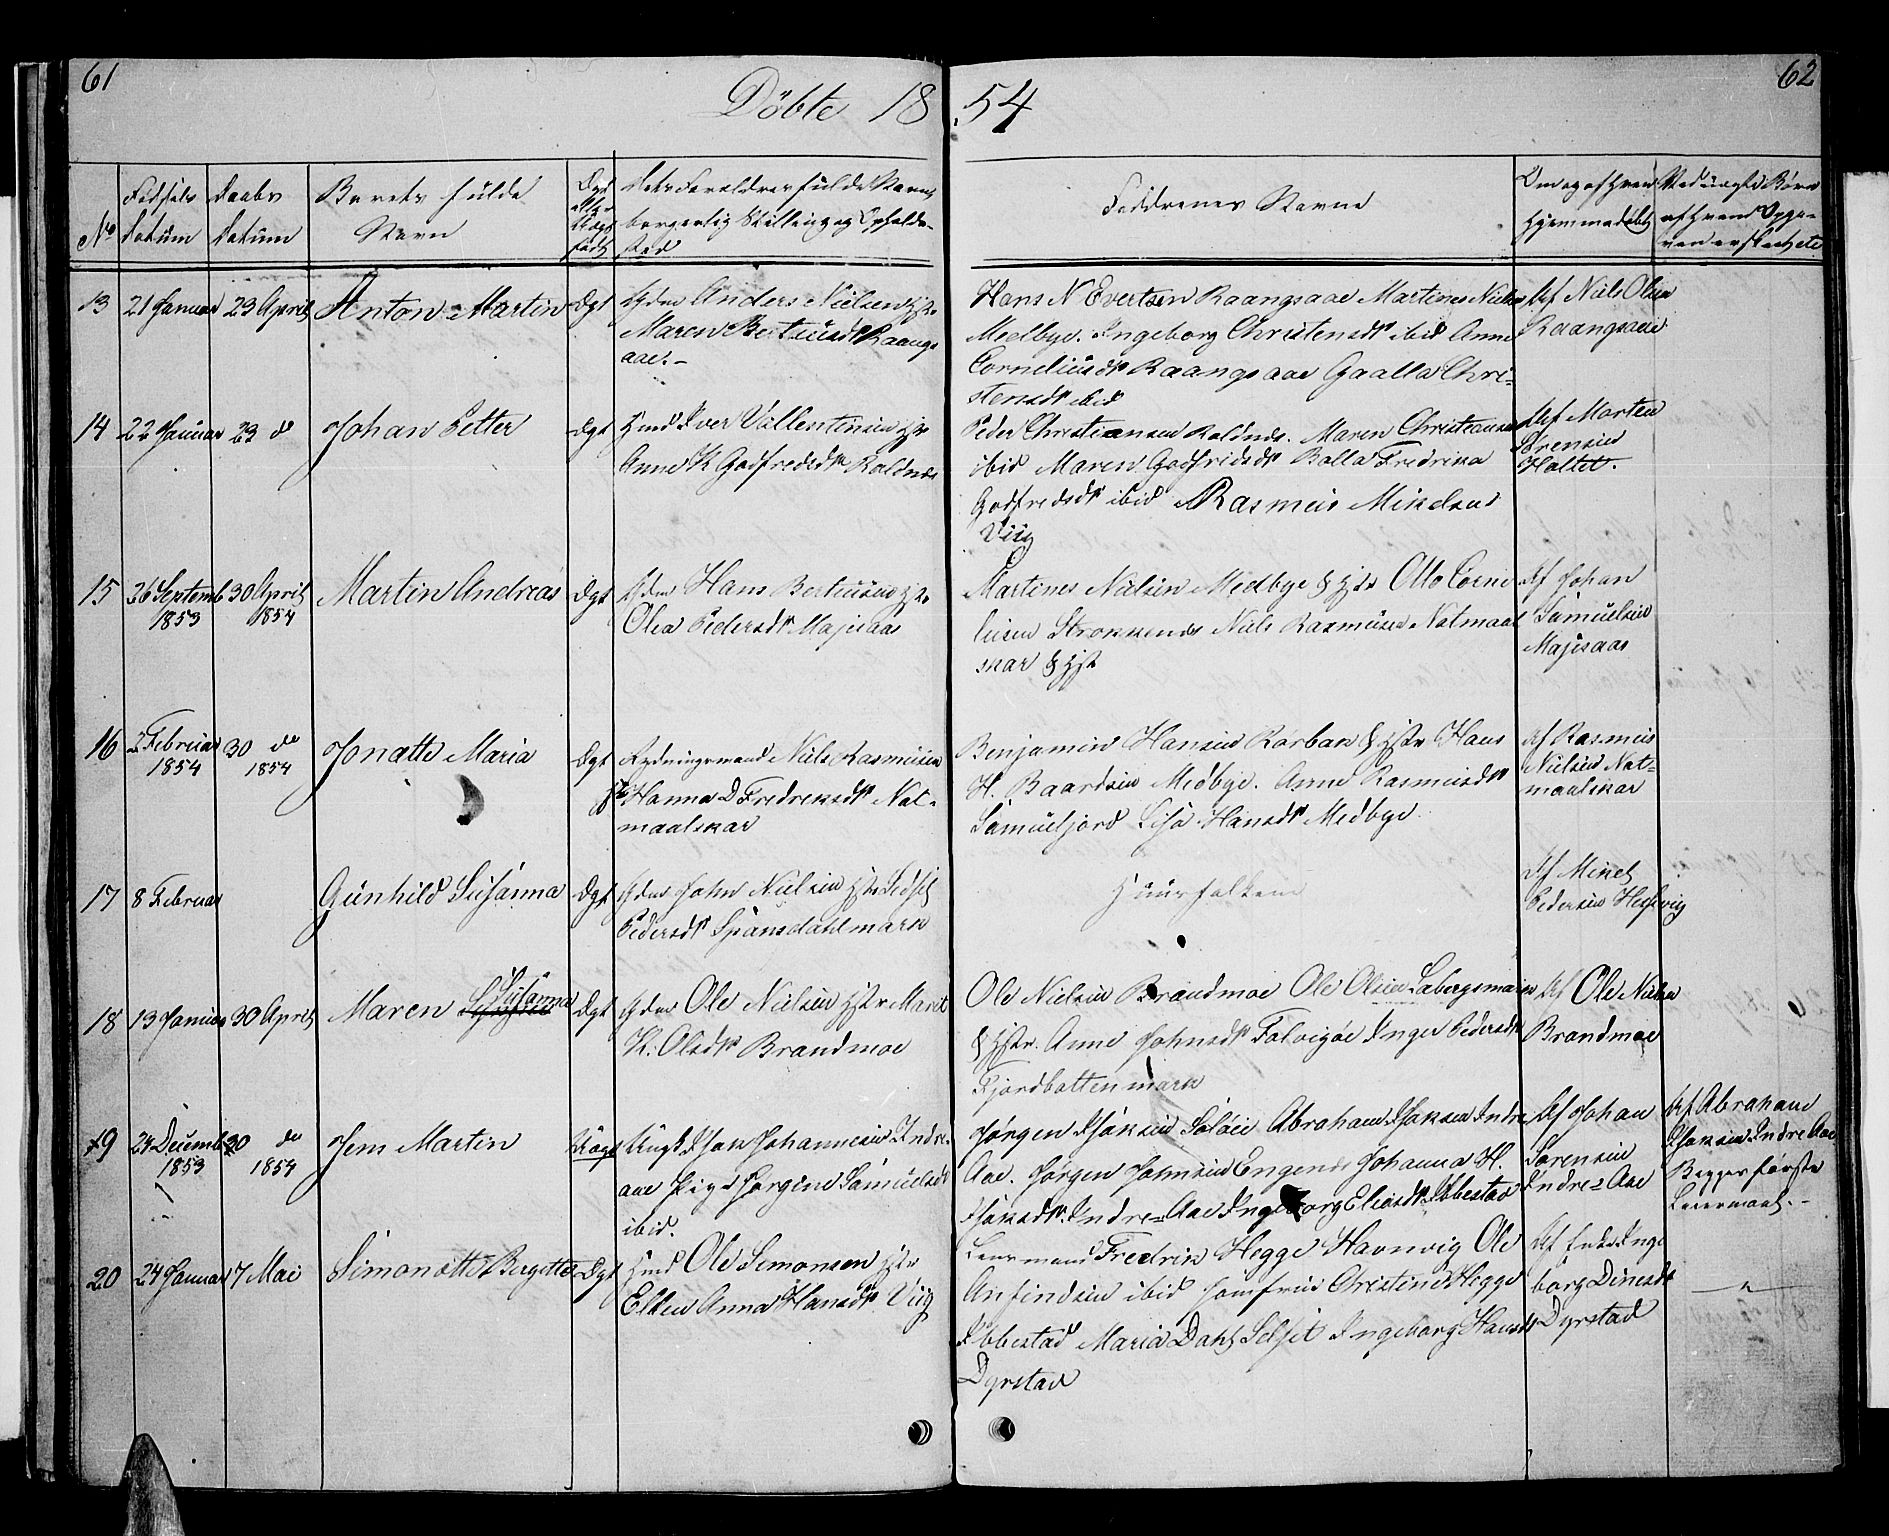 61
62
Döbte 1854
No
Fødsels Datum
Daabs Datum
Barnets fulde Navn
Dgt eller Uægt født
dets Forældres fulde Navne, borgerlig Stilling og Opholdssted
Faddrenes Navne
Om og af hvem hjemmedøbt
13 21 Januar 23 April Anton Martin Dgt
Anders Nielsen Hst
Maren Bertheusdr Raangs
aae.-
Hans N Evertsen Raangsaae Martines Nielsen
Medbye. Ingeborg Christensdr ibid Anne
Corneliusdr Raangsaae Gaalla Chri-
stensdr ibid
Af Niels Olsen
Raangsaae
14 22 Januar 23 do Johan Petter Dgt
Hmd Iver Vallentinsen Hst
Anne K Godfredsdr Roldnæs
Peder Christiansen Roldnæs. Maren Christiansen
ibid Maren Godfridsdr Balla Fredrika
Godfredsdr ibid Rasmus Mikelsen
Viig
Af Morten
Sørensen
Hallet.
15 26 Septemb 1853 30 April 1854 Martin Andreas Dgt
Hans Bertheusen Hst
Olea Pedersdr Majesaas
Martines Nielsen Medbye & Hst Otto Corne
liusen Strokkenes Niels Rasmusen Natmaal
skar & Hst
Af Johan
Samuelsen
Majesaas
16 2 Februar 1854 30 do 1854 Jonette Maria Dgt
Rydningsmand Niels Rasmusen
Hst Hanna D Fredriksdr Nat-
maalskar
Benjamin Hansen Rørbak & Hst Hans
H. Baardsen Medbye. Anne Rasmusdr
Samueljord Lisa Hansdr Medbye
Af Rasmus
Nielsen Nat-
maalskar
17 8 Februar Gunhild Susanna Dgt
John Nielsen Hst
Pedersdr Spansdahlmark
Huusfolkene
Af Mikel
Pedersen
18 13 Januar 30 April Maren Susanna Dgt
Ole Nielsen Hst Marit
K. Olsdr Brandmoe
Ole Nielsen Brandmoe Ole Olsen Labergsmark
& Hst. Anne Johnsdr Inger Pedersdr
Fjordbottenmark
Af Ole Nielsen
Brandmoe
19 24 Decemb 1853 30 do 1854 Jens Martin Uægt
Ungk Isak Johannesen Indre-
aae Pige Jørgine Samuelsdr
ibid.
Jørgen Isaksen Abraham Isaksen Indre
Aae. Jørgen Johnsen Engenes Johanna H.
Isaksdr. Indre-Aae Ingeborg Eliasdr Ibbestad
Af Johan
Sørensen
Indre-Aae
Af Abraham
Isaksen Indre Aae
Begges første
Leiermaal.-
20 24 Januar 7 Mai Simonette Bergette Dgt
Hmd Ole Simonsen Hst
Ellen Anna Hansdr Viig
Lensmand Fredrik Hegge Havnvig Ole
Anfindsen ibid Jomfrue Christine Hegge
Ibbestad Maria Dahl Selset Ingeborg Hansdr
Dyrstad
Af Enke Inge
borg Dinesdr
Dyrstad